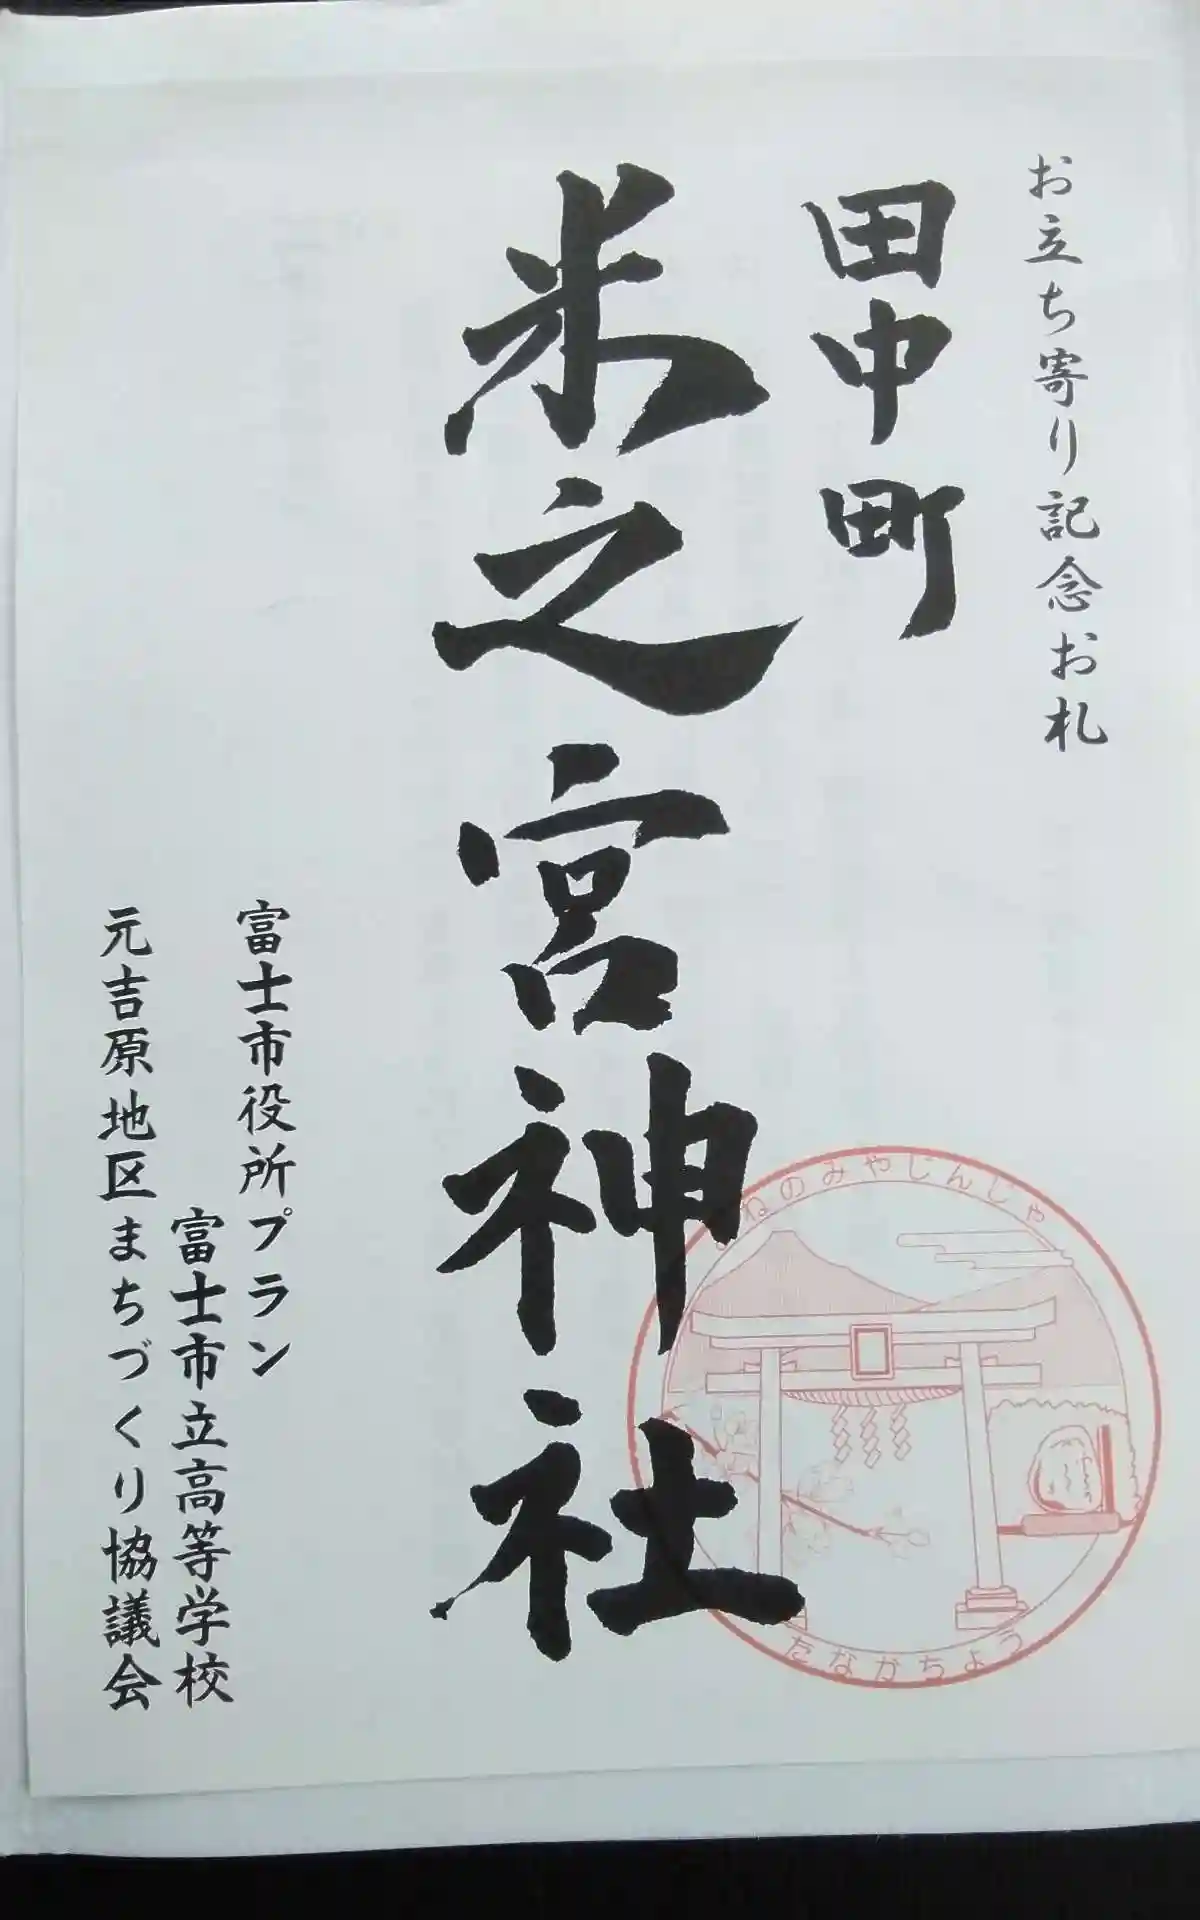 お立ち寄り記念お札
田中町
米之宮神社
富士市役所プラン
富士市立高等学校
元吉原地区まちづくり協議会
ねのみやじんじゃ
たなかちょう